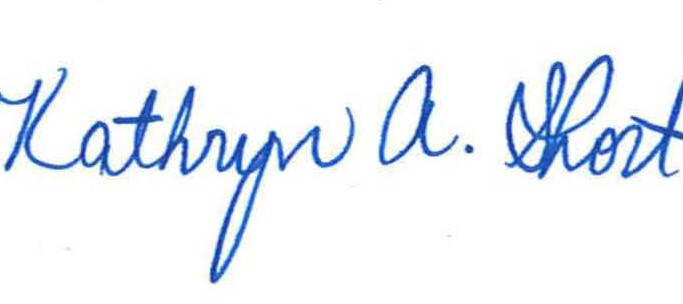 Kathryn A. Short